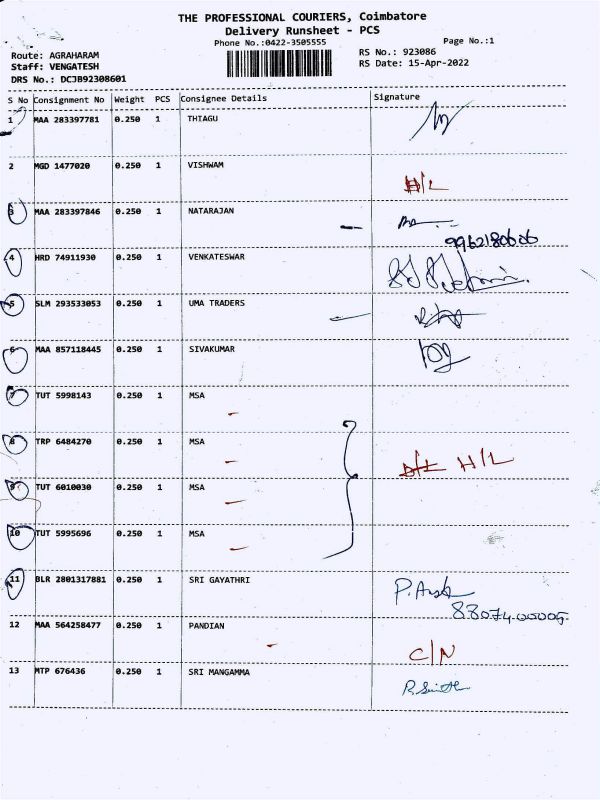 THE PROFESSIONAL COURIERS, Coimbatore
Delivery Runsheet - PCS
Phone No.:0422-3505555
Page No.:1
Route: AGRAHARAM
Staff: VENGATESH
DRS No.: DCJB92308601
RS No.: 923086
RS Date: 15-Apr-2022
S No Consignment No Weight PCS Consignee Details Signature
1 MAA 283397781 0.250 1 THIAGU
2 MGD 1477020 0.250 1 VISHWAM
H/L
3 MAA 283397846 0.250 1 NATARAJAN
4 HRD 74911930 0.250 1 VENKATESWAR
5 SLM 293533053 0.250 1 UMA TRADERS
6 MAA 857118445 0.250 1 SIVAKUMAR
7 TUT 5998143 0.250 1 MSA
8 TRP 6484270 0.250 1 MSA
H/L
9 TUT 6010030 0.250 1 MSA
10 TUT 5995696 0.250 1 MSA
11 BLR 2801317881 0.250 1 SRI GAYATHRI
12 MAA 564258477 0.250 1 PANDIAN
C/N
13 MTP 676436 0.250 1 SRI MANGAMMA